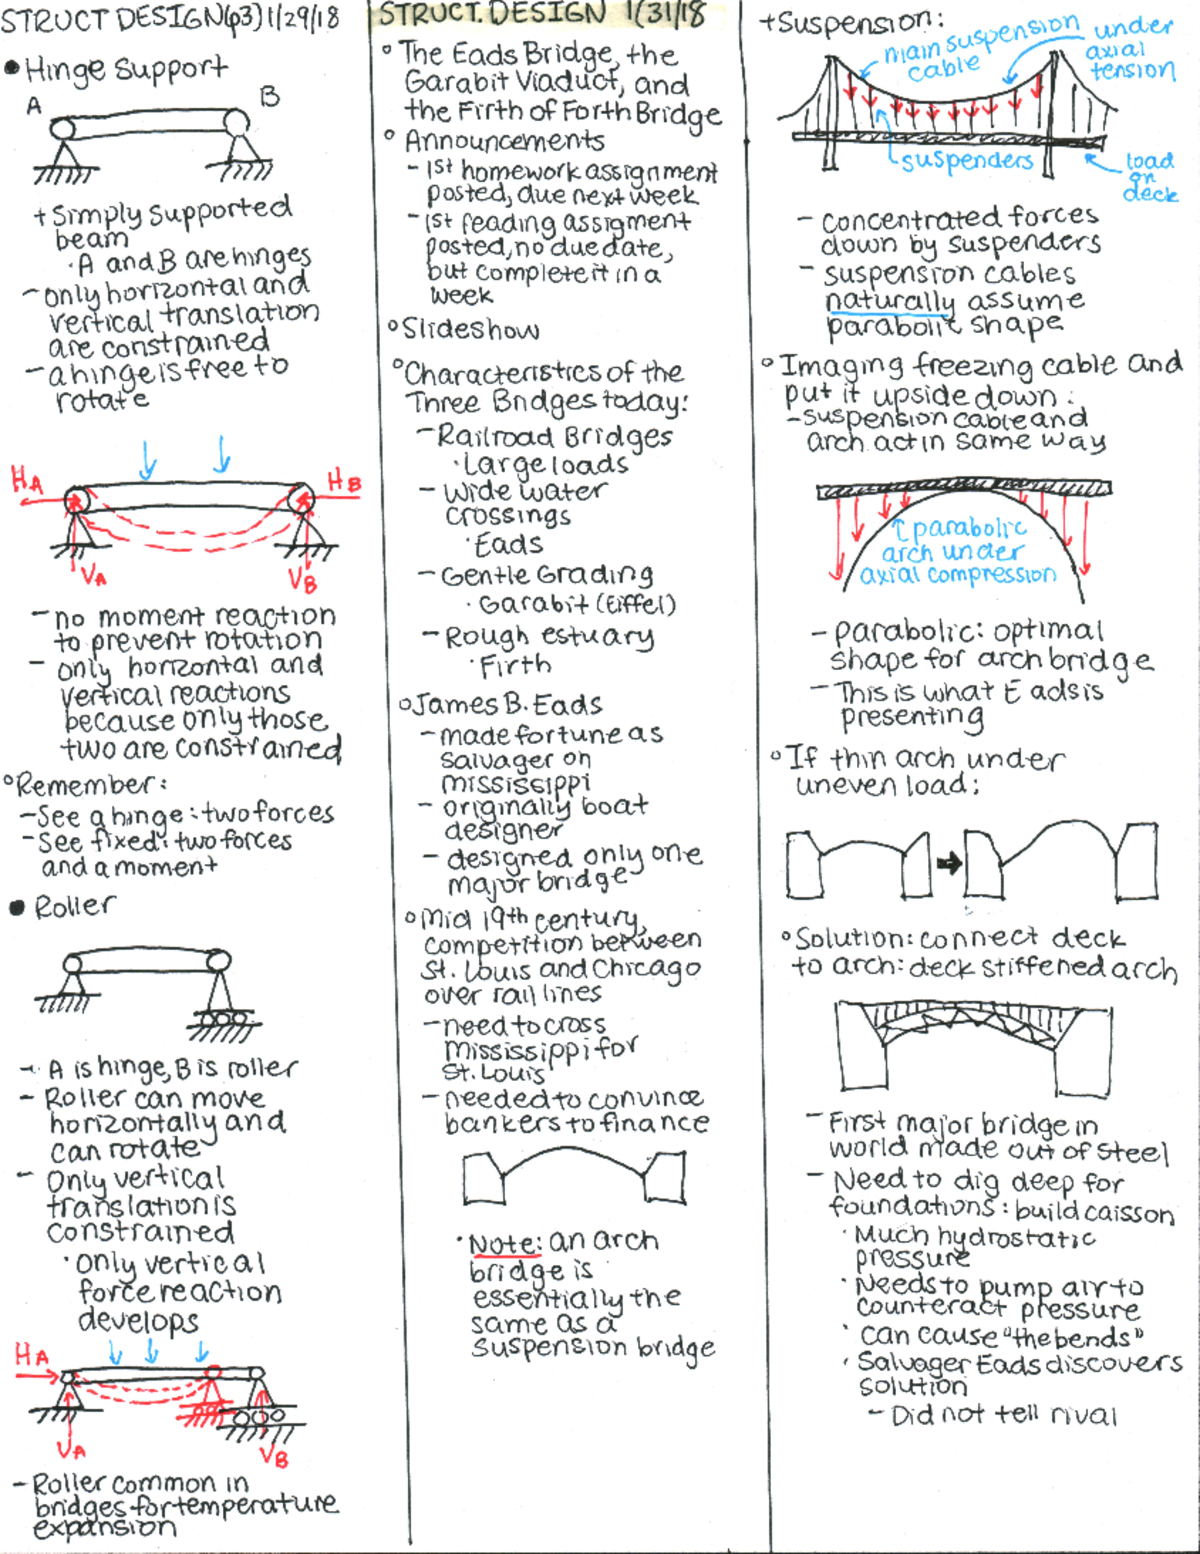 STRUCT DESIGN(p3) 1/29/18
• Hinge Support
A
B
+ Simply supported
beam
· A and B are hinges
- only horizontal and
vertical translation
are constrained
- a hinge is free to
rotate
HA
HB
VA
VB
- no moment reaction
to prevent rotation
- only horizontal and
vertical reactions
because only those
two are constrained
° Remember:
- See a hinge: two forces
- See fixed: two forces
and a moment
• Roller
- A is hinge, B is roller
- Roller can move
horizontally and
can rotate
- Only vertical
translation is
constrained
· only vertical
force reaction
develops
HA
VA
VB
- Roller common in
bridges for temperature
expansion
STRUCT. DESIGN 1/31/18
° The Eads Bridge, the
Garabit Viaduct, and
the Firth of Forth Bridge
° Announcements
- 1st homework assignment
posted, due next week
- 1st reading assigment
posted, no due date,
but complete it in a
week
° Slideshow
° Characteristics of the
Three Bridges today:
- Railroad Bridges
· Large loads
- Wide water
crossings
· Eads
- Gentle Grading
· Garabit (Eiffel)
- Rough estuary
· Firth
° James B. Eads
- made fortune as
salvager on
mississippi
- originally boat
designer
- designed only one
major bridge
° Mid 19th century,
competition between
St. Louis and Chicago
over rail lines
- need to cross
Mississippi for
St. Louis
- needed to convince
bankers to finance
· Note: an arch
bridge is
essentially the
same as a
suspension bridge
+ Suspension:
main suspension
cable
under
axial
tension
suspenders
load
on
deck
- concentrated forces
down by suspenders
- suspension cables
naturally assume
parabolic shape
° Imaging freezing cable and
put it upside down:
- suspension cable and
arch act in same way
parabolic
arch under
axial compression
- parabolic: optimal
shape for arch bridge
- This is what Eads is
presenting
° If thin arch under
uneven load:
° Solution: connect deck
to arch: deck stiffened arch
- First major bridge in
world made out of steel
- Need to dig deep for
foundations: build caisson
· Much hydrostatic
pressure
· Needs to pump air to
counteract pressure
· can cause "the bends"
· Salvager Eads discovers
solution
- Did not tell rival